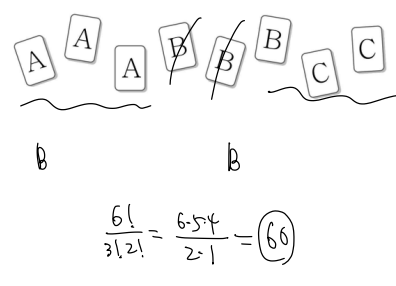 A A A B B B C C
B B
6!/3!2! = 6·5·4/2·1 = 60